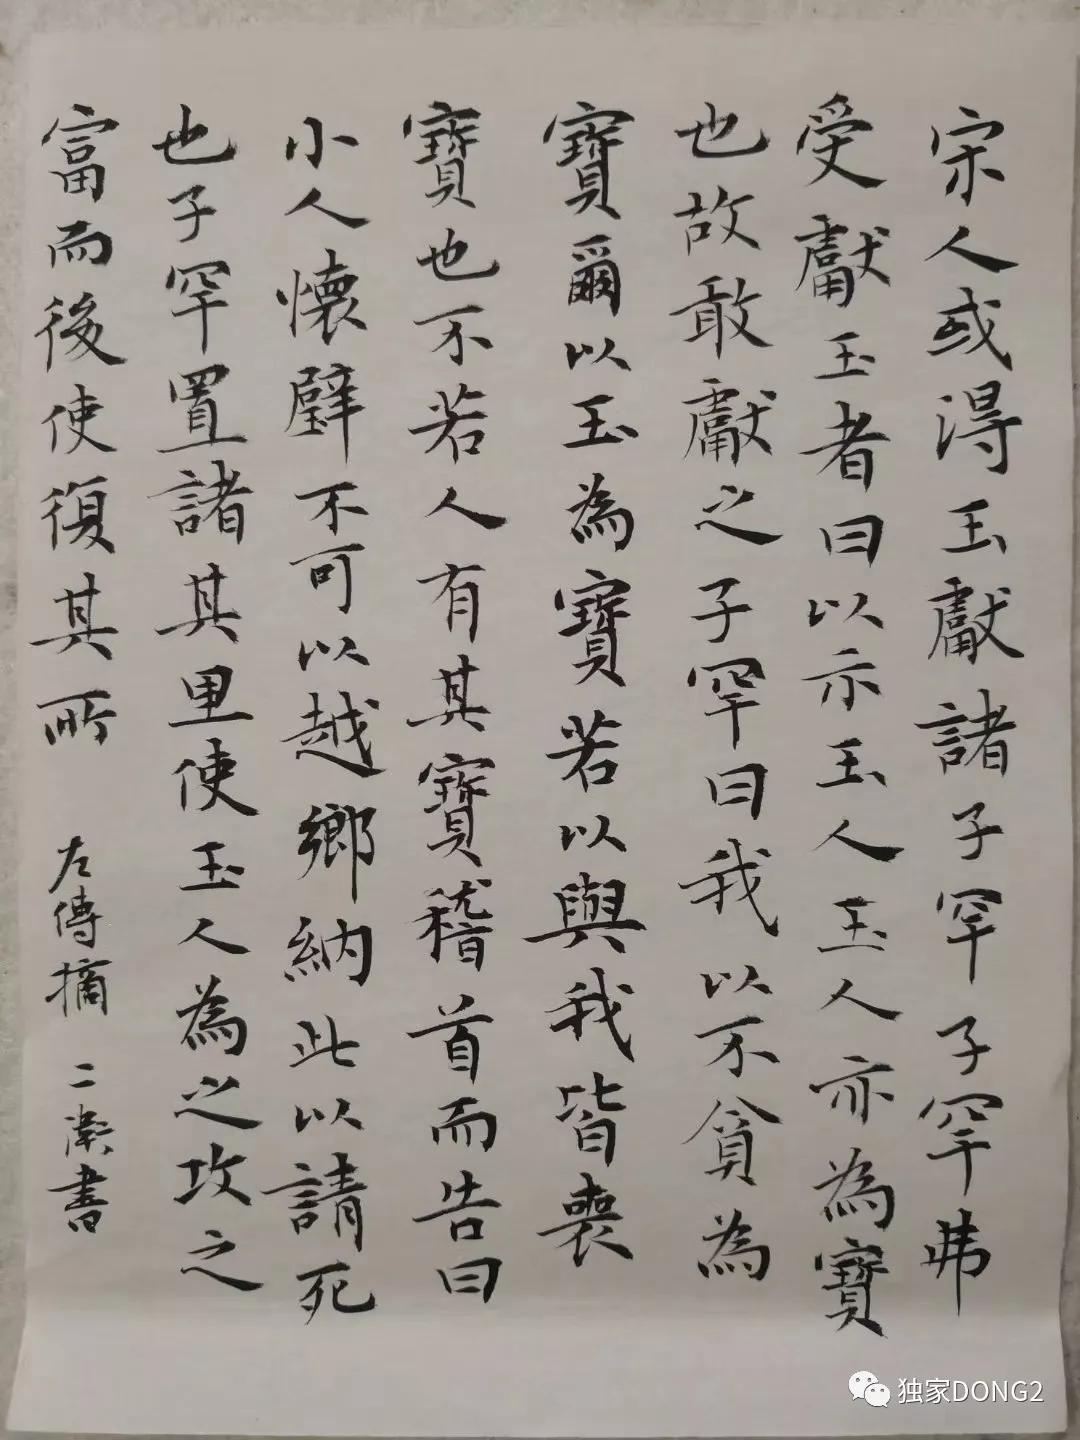 宋人或得玉獻諸子罕子罕弗
受獻玉者曰以示玉人玉人亦為寶
也故敢獻之子罕曰我以不貪為
寶爾以玉為寶若以與我皆喪
寶也不若人有其寶稽首而告曰
小人懷璧不可以越鄉納此以請死
也子罕置諸其里使玉人為之攻之
富而後使復其所 左傳摘 二 書
独家DONG2